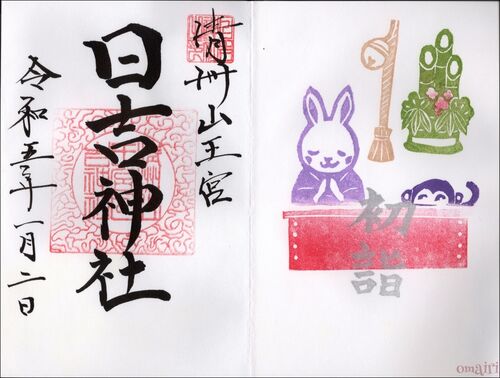 清洲山王宮
日吉神社
令和五年一月二日
初詣
omairi